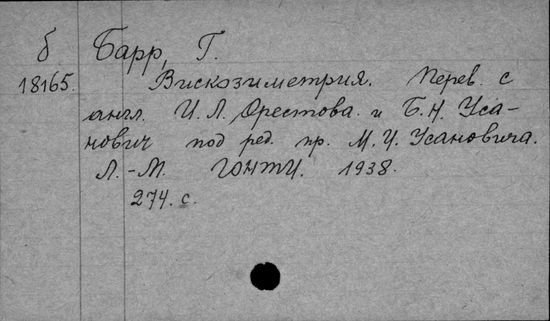 б Барр, Г.
18165. Вискозиметрия. Перев. с
англ. И. Л. Орестова. и Б. Н. Уса-
нович под ред. пр. М. И. Усановича.
Л.-М. ГОНТИ. 1938.
274. с.